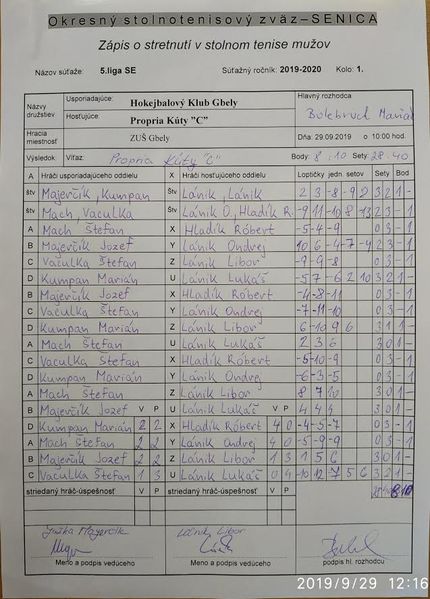 Okresný stolnotenisový zväz – SENICA
Zápis o stretnutí v stolnom tenise mužov
Názov súťaže: 5.liga SE Súťažný ročník: 2019-2020 Kolo: 1.
Názvy družstiev Usporiadajúce: Hokejbalový Klub Gbely Hlavný rozhodca
Hosťujúce: Propria Kúty "C"
Hracia miestnosť ZUŠ Gbely Dňa: 29.09.2019 o 10:00 hod.
Výsledok: Víťaz: Propria Kúty "C" Body: 8 : 10 Sety: 28:40
A Hráči usporiadajúceho oddielu X Hráči hosťujúceho oddielu Loptičky jedn. setov Sety Bod
štv Majerčík, Kumpan Štv Lánik, Lánik 2 3 -8 -9 2 3 2 1 -
štv Mach, Vaculka Štv Lánik O, Hladík R. -9 11 -10 8 -13 2 3 - 1
A Mach Štefan X Hladík Róbert -5 -4 -9 0 3 - 1
B Majerčík Jozef Y Lánik Ondrej 10 6 -4 -7 -9 2 3 - 1
C Vaculka Štefan Z Lánik Libor -9 -9 -8 0 3 - 1
D Kumpan Marián U Lánik Lukáš -5 7 -6 2 10 3 2 1 -
B Majerčík Jozef X Hladík Róbert -4 -8 -11 0 3 - 1
C Vaculka Štefan Y Lánik Ondrej -7 -11 -10 0 3 - 1
D Kumpan Marián Z Lánik Libor 6 -10 9 6 3 1 1 -
A Mach Štefan U Lánik Lukáš 2 3 6 3 0 1 -
C Vaculka Štefan X Hladík Róbert -5 -10 -9 0 3 - 1
D Kumpan Marián Y Lánik Ondrej -6 -3 -5 0 3 - 1
A Mach Štefan Z Lánik Libor 8 7 10 3 0 1 -
B Majerčík Jozef V P U Lánik Lukáš V P 4 4 4 3 0 1 -
D Kumpan Marián 2 2 X Hladík Róbert 4 0 -4 -5 -7 0 3 - 1
A Mach Štefan 2 2 Y Lánik Ondrej 4 0 -5 -9 -9 0 3 - 1
B Majerčík Jozef 2 2 Z Lánik Libor 1 3 1 5 6 3 0 1 -
C Vaculka Štefan 1 3 U Lánik Lukáš 0 4 -10 12 -7 5 6 3 2 1 -
striedaný hráč-úspešnosť V P striedaný hráč-úspešnosť V P 28 40 8 10
Lánik Libor
Meno a podpis vedúceho Meno a podpis vedúceho podpis hl. rozhodcu
2019/9/29 12:16